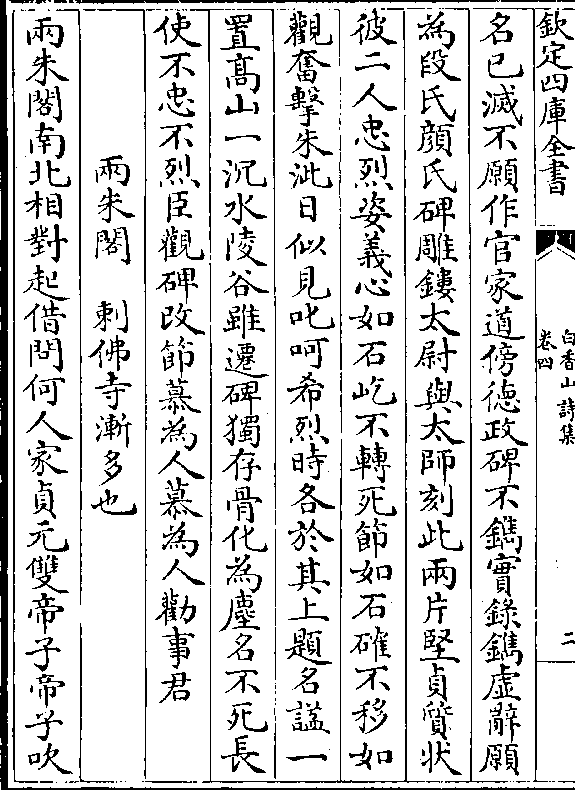 欽定四庫全書
白香山詩集
卷四
二
名已滅不願作官家道傍德政碑不鐫實錄鐫虛辭願
為段氏顔氏碑雕鏤太尉與太師刻此兩片堅貞質狀
彼二人忠烈姿義心如石屹不轉死節如石確不移如
觀奮擊朱泚日似見叱呵希烈時各於其上題名諡一
置髙山一沉水陵谷雖遷碑獨存骨化為塵名不死長
使不忠不烈臣觀碑改節慕為人慕為人勸事君
兩朱閣　刺佛寺漸多也
兩朱閣南北相對起借問何人家貞元雙帝子帝子吹